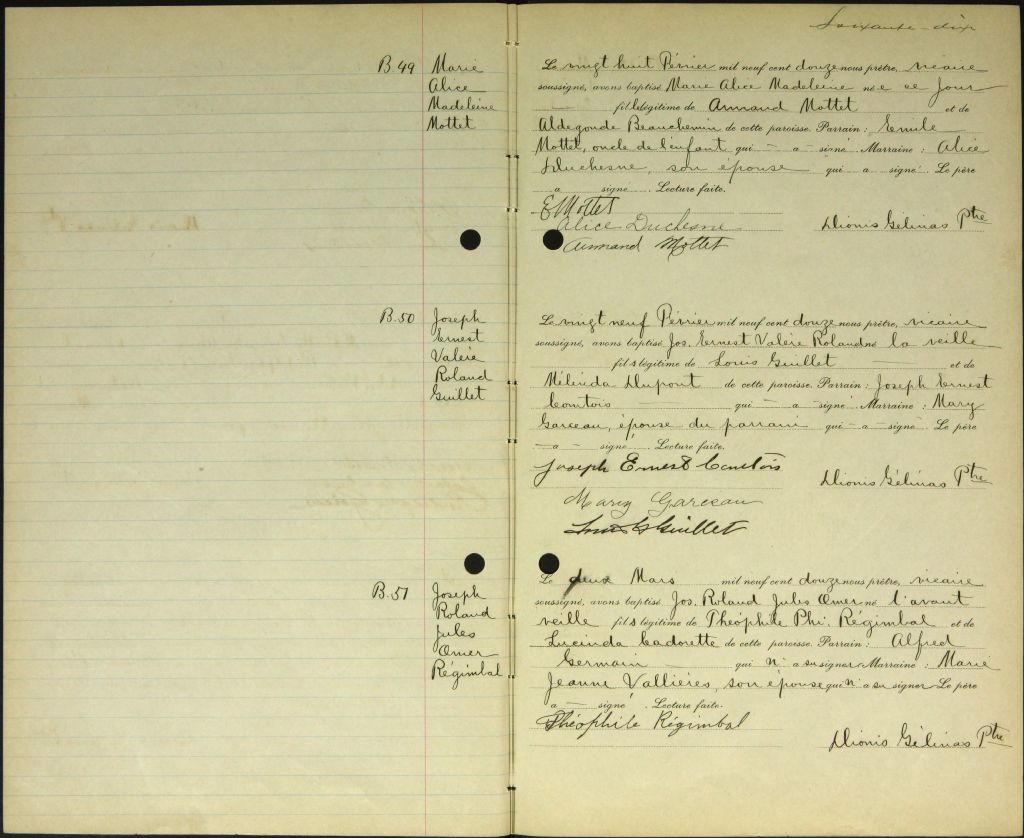 Soixante-dix
B.49 Marie
Alice
Madeleine
Mottet
Le vingt huit Février mil neuf cent douze nous prêtre, vicaire
soussigné, avons baptisé Marie Alice Madeleine née ce jour
fille légitime de Armand Mottet et de
Aldegonde Beauchemin de cette paroisse. Parrain : Emile
Mottet, oncle de l'enfant qui — a — signé. Marraine : Alice
Duchesne, son épouse qui — a — signé. Le père
a signé. Lecture faite.
E Mottet
Alice Duchesne
Dionis Gélinas Ptre
Armand Mottet
B.50 Joseph
Ernest
Valère
Roland
Guillet
Le vingt neuf Février mil neuf cent douze nous prêtre, vicaire
soussigné, avons baptisé Jos. Ernest Valère Roland né la veille
fils légitime de Louis Guillet et de
Mélinda Dupont de cette paroisse. Parrain : Joseph Ernest
Comtois qui — a — signé. Marraine : Mary
Garceau, épouse du parrain qui — a — signé. Le père
— a — signé. Lecture faite.
Joseph Ernest Comtois
Dionis Gélinas Ptre
Mary Garceau
Louis Guillet
B.51 Joseph
Roland
Jules
Omer
Régimbal
Le deux Mars mil neuf cent douze nous prêtre, vicaire
soussigné, avons baptisé Jos. Roland Jules Omer né l'avant
veille fils légitime de Théophile Phi. Régimbal et de
Lucinda Cadorette de cette paroisse. Parrain : Alfred
Germain qui n'a su signer Marraine : Marie
Jeanne Vallières, son épouse qui n'a su signer Le père
a — signé. Lecture faite.
Théophile Régimbal
Dionis Gélinas Ptre